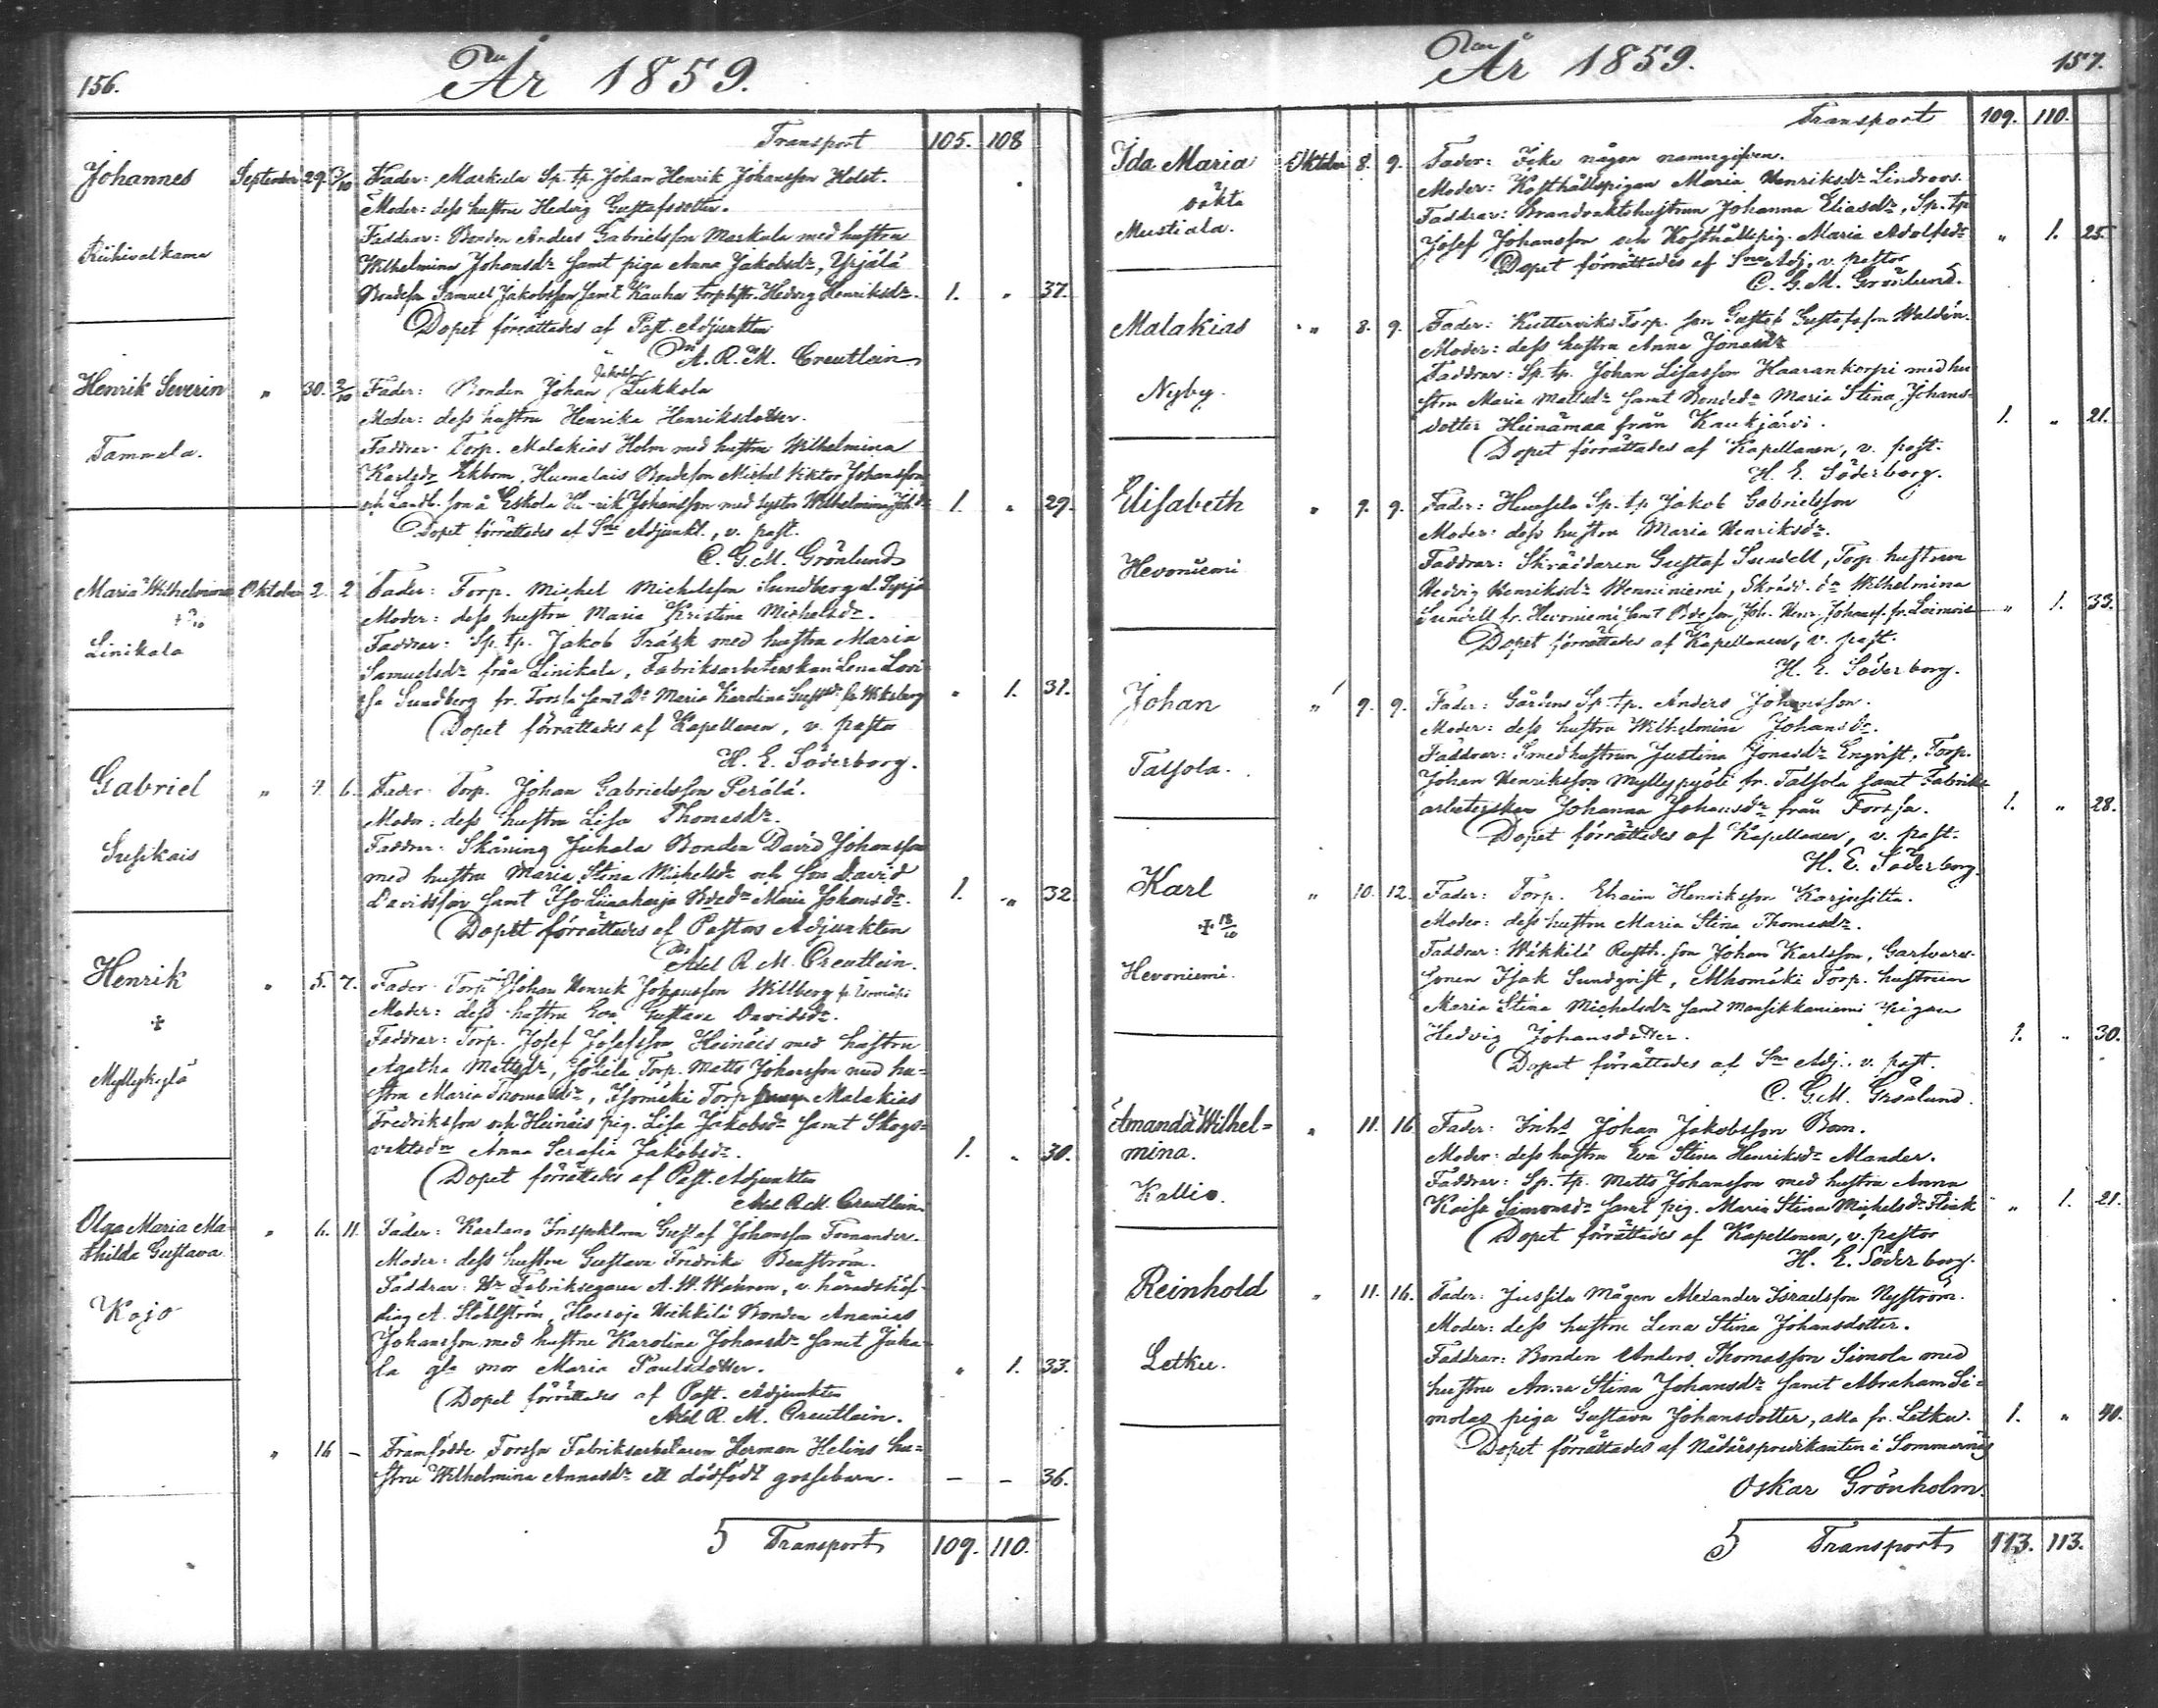 156.
År 1859.
Transport 105. 108
Johannes September 29. 3/10 Fader: Markula Sp. tp. Johan Henrik Johansson Holst.
Moder: dess hustru Hedvig Gustafsdotter.
Faddrar: Bonden Anders Gabrielsson Markula med hustru
Riihivalkama Wilhelmina Johansdr samt piga Anna Jakobsdr, Yrjälä
Bondeson Samuel Jakobsson samt Kauha Torp. hstr. Hedvig Henriksdr. 1. " 37.
Dopet förrättades af Past. Adjunkten
A. R. M. Creutlein
Henrik Severin " 30. 2/10 Fader: Bonden Johan Jakobsson Lukkola
Moder: dess hustru Henrika Henriksdotter.
Tammela. Faddrar: Torp. Malakias Holm med hustru Wilhelmina
Karlsdr Ekbom, Humalais Bondeson Michel Viktor Johansson
och Landb. son å Eskola Henrik Johansson med syster Wilhelmina Joh.dr 1. " 29.
Dopet förrättades af Sne Adjunkt., v. past.
C. G. M. Grönlund
Maria Wilhelmina Oktober 2. 2 Fader: Torp. Michel Michelsson Sundberg
Moder: dess hustru Maria Kristina Michelsdr.
Linikala Faddrar: Sp. tp. Jakob Träsk med hustru Maria
Samuelsdr från Linikala, Fabriksarbeterskan Lena Lovi-
sa Sundberg fr. Forssa samt Dr Maria Karolina Gustdr fr Wiksberg " 1. 31.
Dopet förrättades af Kapellanen, v. pastor
H. E. Söderborg.
Gabriel " 4. 6. Fader: Torp. Johan Gabrielsson Perälä.
Moder: dess hustru Lisa Thomasdr.
Susikais Faddrar: Skäning Juhala Bonden David Johansson
med hustru Maria Stina Michelsdr och son David
Davidsson samt Iso Liinaharja Bdedr Maria Johansdr. 1. " 32
Dopet förrättades af Pastors Adjunkten
Axel R. M. Creutlein.
Henrik " 5. 7. Fader: Torp. Johan Henrik Johansson Willberg fr Isomäki
Moder: dess hustru Eva Gustava Davidsdr.
+ Faddrar: Torp. Josef Josefsson Heinäis med hustru
Myllykylä Agatha Mattsdr, Torp. Matts Johansson med hu-
stru Maria Thomasdr, Isomäki Torp. Malakias
Fredriksson och Heinäis pig. Lisa Jakobsdr samt Skogs-
vaktsdr Anna Serafia Jakobsdr. 1. " 30.
Dopet förrättades af Past. Adjunkten
Axel R. M. Creutlein
Olga Maria Ma- " 6. 11. Fader: Karlano Inspektorn Gustaf Johansson Fornander.
thilda Gustava Moder: dess hustru Gustava Fredrika
Kojo Faddrar: Hr Fabriksegaren A. W. Wahren, v. häradshöf-
ding A. Stålström, Wekkilä Bonden Ananias
Johansson med hustru Karolina Johansdr samt Juha-
la gla mor Maria Paulsdotter. " 1. 33.
Dopet förrättades af Past. Adjunkten
Axel R. M. Creutlein.
" 16 – Framfödde Forssa Fabriksarbetaren Herman Helins hu-
stru Wilhelmina Annasdr ett dödfödt gossebarn. – – 36.
5 Transport 109. 110.
År 1859.
157.
Transport 109. 110.
Ida Maria Oktober 8. 9. Fader: Icke någon namngifven.
oäkta Moder: Kosthållspigan Maria Henriksdr Lindroos.
Mustiala. Faddrar: Brandvaktshustrun Johanna Eliasdr, Sp. tp
Josef Johansson och Kosthållspig. Maria Adolfsdr " 1. 25.
Dopet förrättades af Sne Adj., v. pastor
C. G. M. Grönlund.
Malakias " 8. 9. Fader: Torp. son Gustaf Gustafsson Waldén.
Moder: dess hustru Anna Jonasdr
Nyby. Faddrar: Sp. tp. Johan Lisasson Haarankorpi med hu-
stru Maria Mattsdr samt Bondedr Maria Stina Johans-
dotter Heinämaa från Kaukjärvi. 1. " 21.
Dopet förrättades af Kapellanen, v. past.
H. E. Söderborg.
Elisabeth " 9. 9. Fader: Sp. tp Jakob Gabrielsson
Moder: dess hustru Maria Henriksdr.
Hevoniemi Faddrar: Skräddaren Gustaf Sundell, Torp. hustrun
Hedvig Henriksdr Wenniniemi, Skrädd. dr Wilhelmina
Sundell fr. Hevoniemi samt Bdeson Joh. Henr. Johanss. fr. Loimois " 1. 33.
Dopet förrättades af Kapellanen, v. past.
H. E. Söderborg.
Johan " 9. 9. Fader: Gårdens Sp. tp. Anders Johansson.
Moder: dess hustru Wilhelmina Johansdr.
Talsola. Faddrar: Smedhustrun Justina Jonasdr Engvist, Torp.
Johan Henriksson Myllypyöli fr. Talsola samt Fabriks-
arbeterskan Johanna Johansdr från Forssa. 1. " 28.
Dopet förrättades af Kapellanen, v. past.
H. E. Söderborg.
Karl " 10. 12. Fader: Torp. Efraim Henriksson Karjusilta.
Moder: dess hustru Maria Stina Thomasdr.
+ 18/10 Faddrar: Wäkkilä Rusth. son Johan Karlsson, Garfvare-
Hevoniemi. sonen Isak Sundqvist, Torp. hustrun
Maria Stina Michelsdr samt Mansikkaniemi Pigan
Hedvig Johansdotter. 1. " 30.
Dopet förrättades af Sne Adj., v. past.
C. G. M. Grönlund.
Amanda Wilhel- " 11. 16 Fader: Inhs Johan Jakobsson Bom.
mina. Moder: dess hustru Eva Stina Henriksdr Alander.
Kallio. Faddrar: Sp. tp. Matts Johansson med hustru Anna
Kaisa Simonsdr samt pig. Maria Stina Michelsdr Flink " 1. 21.
Dopet förrättades af Kapellanen, v. pastor
H. E. Söderborg.
Reinhold " 11. 16. Fader: Jussila Mågen Alexander Israelsson Nyström.
Moder: dess hustru Lena Stina Johansdotter.
Letku. Faddrar: Bonden Anders Thomasson Simola med
hustru Anna Stina Johansdr samt Abraham Si-
molas piga Gustava Johansdotter, alla fr. Letku. 1. " 40.
Dopet förrättades af Nådårspredikanten i Sommernäs
Oskar Grönholm.
5 Transport 113. 113.